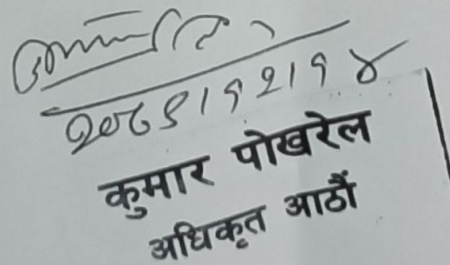 २०७९।१२।१४
कुमार पोखरेल
अधिकृत आठौं